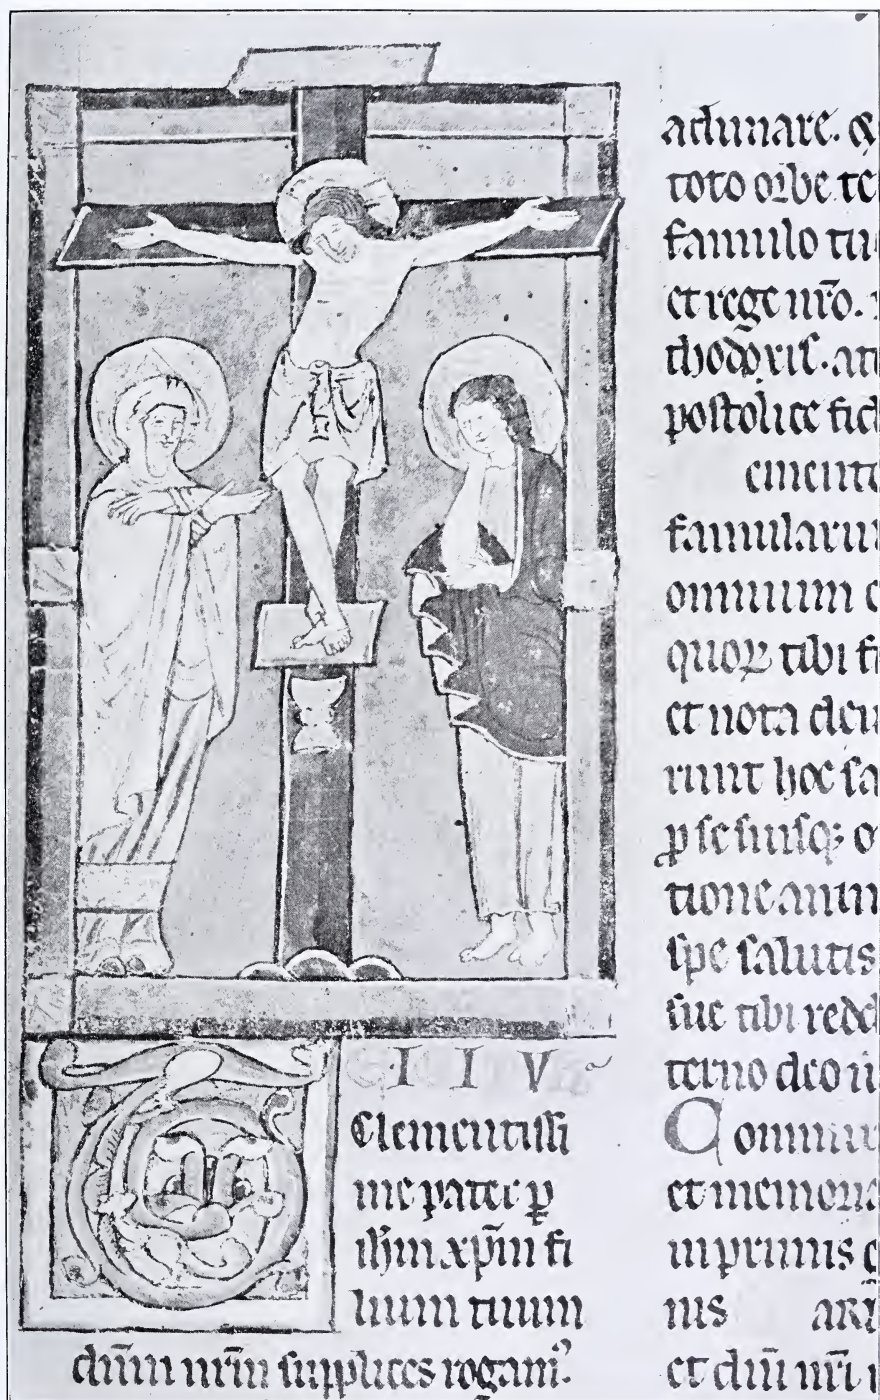 I I V
Clementissi
me pater p̲
ih̄m xp̄m fi
lium tuum
dn̄m nr̄m supplices rogam⁹.
adunare. &
toto orbe te
famulo tu
et rege nr̄o.
thodoxis. at
postolice fid
emento
famularu
omnium c
quoꝝ tibi fi
et nota deu
runt hoc sa
ꝑ se suisq; o
tione anim
spe salutis
sue tibi redd
terno deo ui
Commu
et memoria
inprimis g
nis ari
et dn̄i nr̄i i